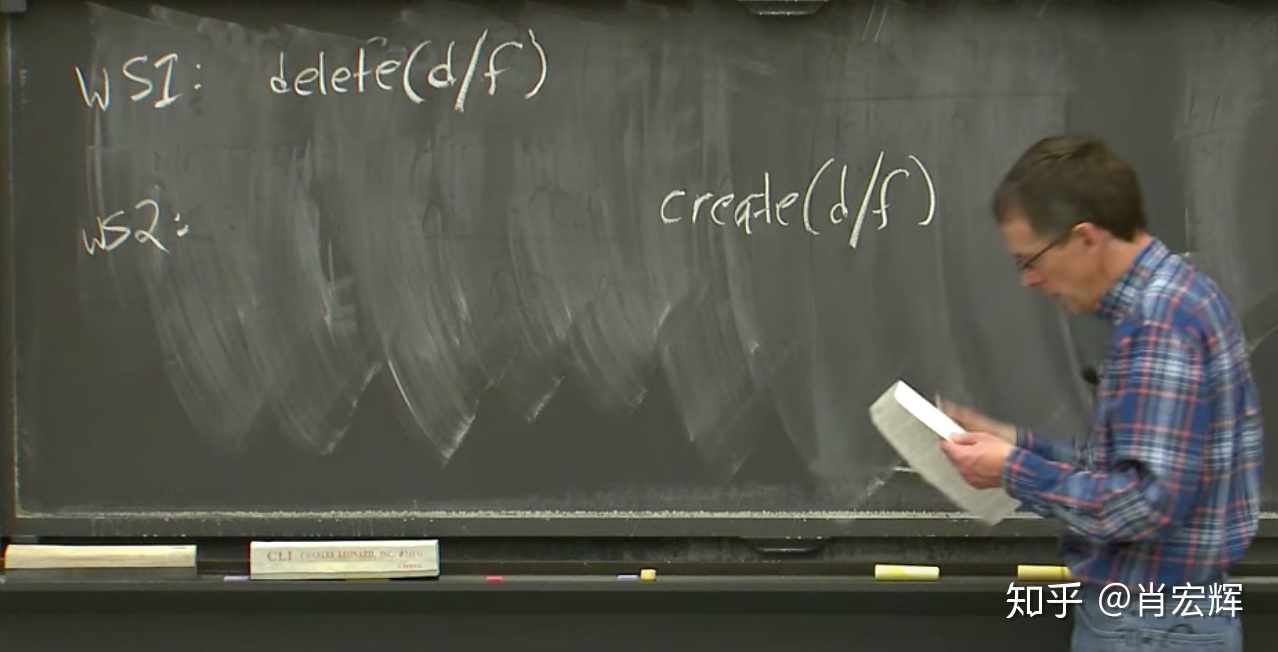 WS1: delete(d/f)
WS2: create(d/f)
CLI CHARLES LEONARD, INC.
知乎 @肖宏辉